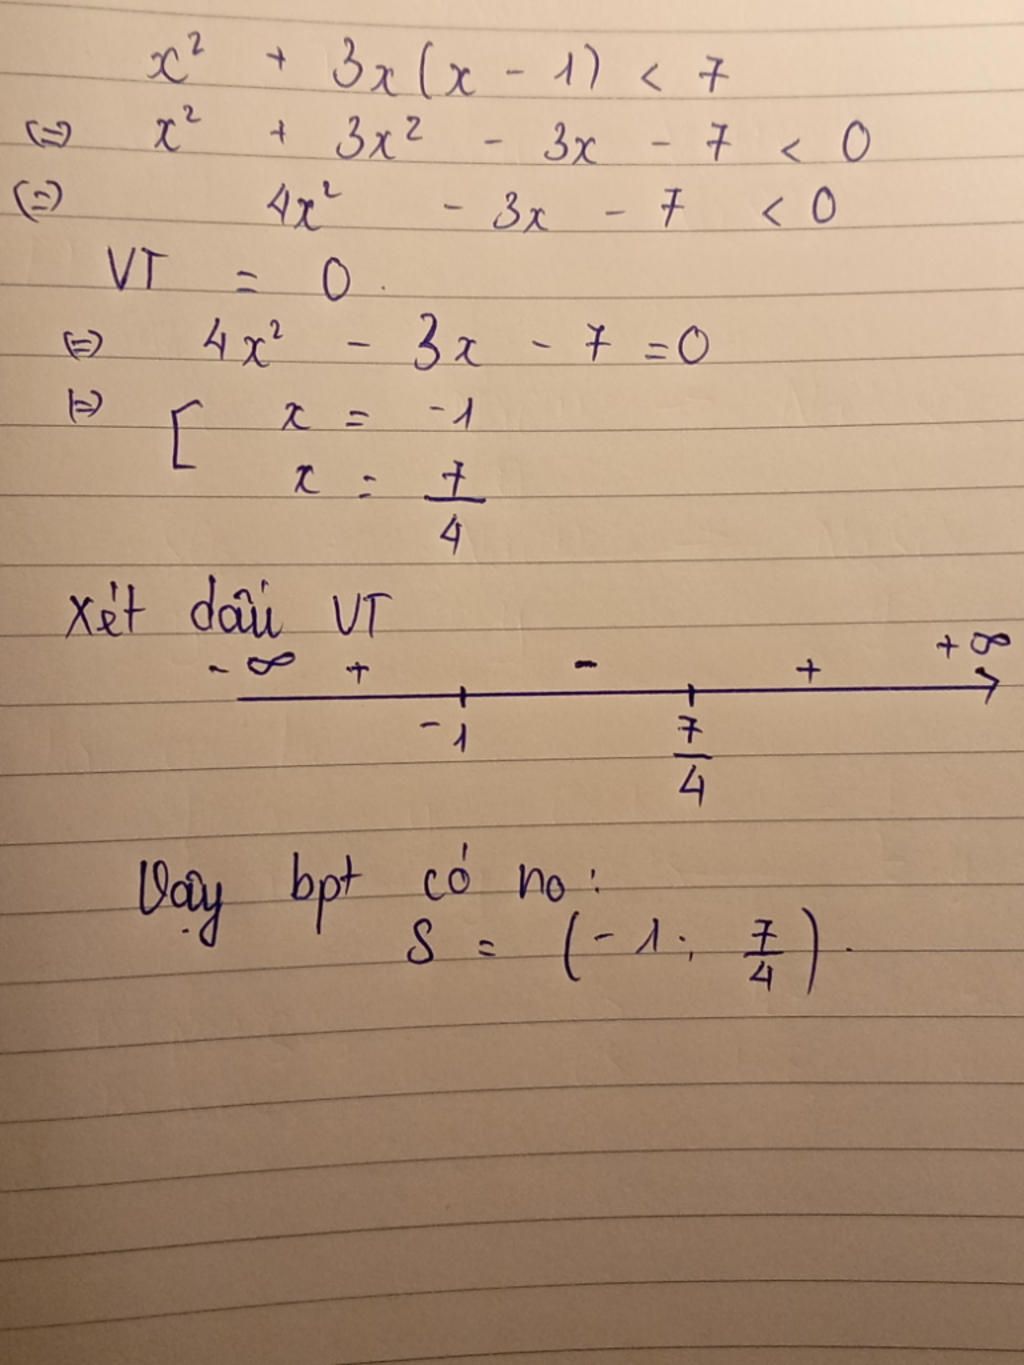 x² + 3x(x - 1) < 7
(=) x² + 3x² - 3x - 7 < 0
(=) 4x² - 3x - 7 < 0
VT = 0.
(=) 4x² - 3x - 7 = 0
(=) [ x = -1
x = 7/4
Xét dấu VT
-∞ + - + +∞
-1 7/4
Vậy bpt có no:
S = (-1; 7/4).